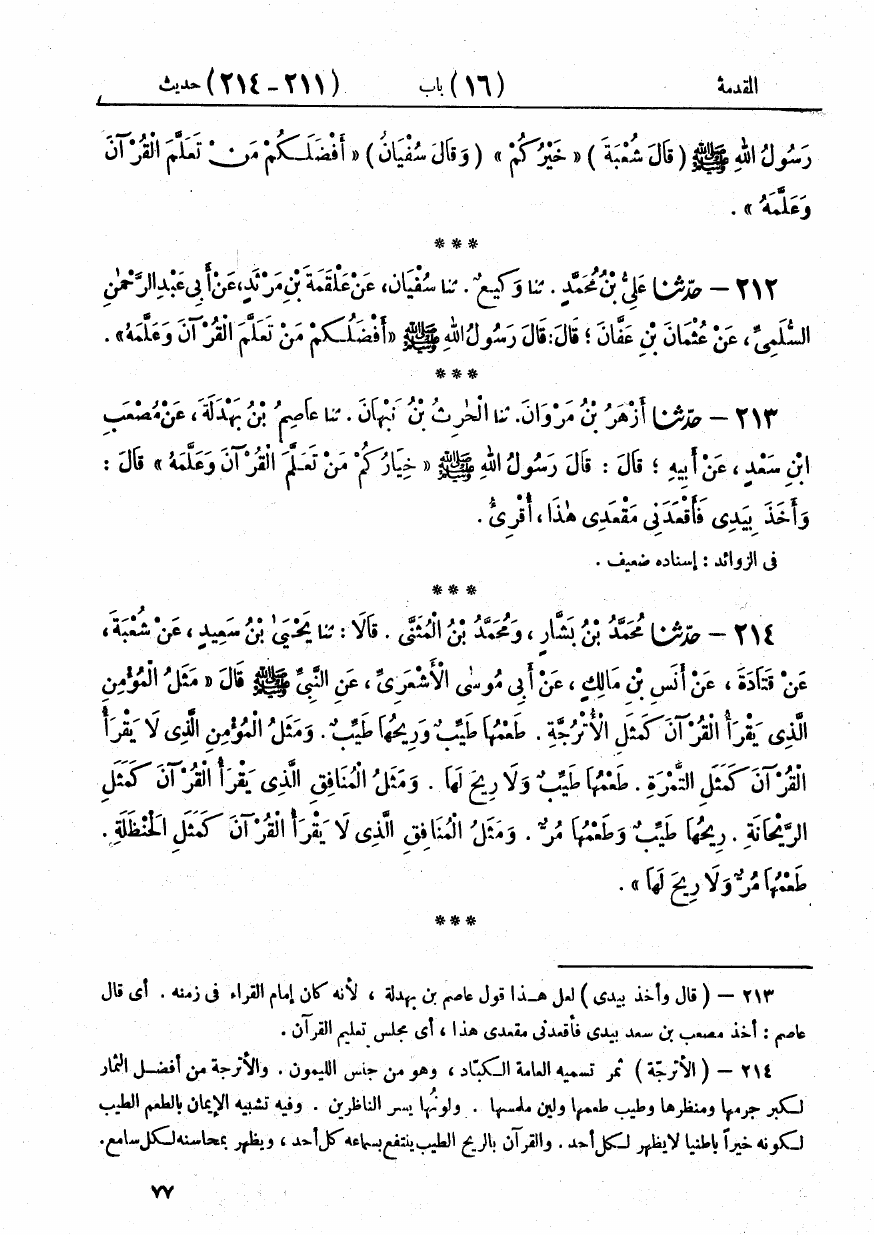 المقدمة (١٦) باب (٢١١ - ٢١٤) حديث
رَسُولُ اللهِ ﷺ (قَالَ شُعْبَةُ) «خَيْرُكُمْ» (وَقَالَ سُفْيَانُ) «أَفْضَلُكُمْ مَنْ تَعَلَّمَ الْقُرْآنَ
وَعَلَّمَهُ».
***
٢١٢ – حدّثنا عَلِيُّ بْنُ مُحَمَّدٍ. ثنا وَكِيعٌ. ثنا سُفْيَان، عَنْ عَلْقَمَةَ بْنِ مَرْثَدٍ، عَنْ أَبِي عَبْدِ الرَّحْمٰنِ
السُّلَمِيِّ، عَنْ عُثْمَانَ بْنِ عَفَّانَ؛ قَالَ: قَالَ رَسُولُ اللهِ ﷺ «أَفْضَلُكُمْ مَنْ تَعَلَّمَ الْقُرْآنَ وَعَلَّمَهُ».
***
٢١٣ – حدّثنا أَزْهَرُ بْنُ مَرْوَانَ. ثنا الْحٰرِثُ بْنُ نَبْهَانَ. ثنا عَاصِمُ بْنُ بَهْدَلَةَ، عَنْ مُصْعَبِ
ابْنِ سَعْدٍ، عَنْ أَبِيهِ؛ قَالَ: قَالَ رَسُولُ اللهِ ﷺ «خِيَارُكُمْ مَنْ تَعَلَّمَ الْقُرْآنَ وَعَلَّمَهُ» قَالَ:
وَأَخَذَ بِيَدِى فَأَقْعَدَنِى مَقْعَدِى هٰذَا، أُقْرِئُ.
فى الزوائد: إسناده ضعيف.
***
٢١٤ – حدّثنا مُحَمَّدُ بْنُ بَشَّارٍ، وَمُحَمَّدُ بْنُ الْمُثَنَّى. قَالَا: ثنا يَحْيَىٰ بْنُ سَعِيدٍ، عَنْ شُعْبَةَ،
عَنْ قَتَادَةَ، عَنْ أَنَسِ بْنِ مَالِكٍ، عَنْ أَبِي مُوسٰى الْأَشْعَرِىِّ، عَنِ النَّبِيِّ ﷺ قَالَ «مَثَلُ الْمُؤْمِنِ
الَّذِى يَقْرَأُ الْقُرْآنَ كَمَثَلِ الْأُتْرُجَّةِ. طَعْمُهَا طَيِّبٌ وَرِيحُهَا طَيِّبٌ. وَمَثَلُ الْمُؤْمِنِ الَّذِى لَا يَقْرَأُ
الْقُرْآنَ كَمَثَلِ التَّمْرَةِ. طَعْمُهَا طَيِّبٌ وَلَا رِيحَ لَهَا. وَمَثَلُ الْمُنَافِقِ الَّذِى يَقْرَأُ الْقُرْآنَ كَمَثَلِ
الرَّيْحَانَةِ. رِيحُهَا طَيِّبٌ وَطَعْمُهَا مُرٌّ. وَمَثَلُ الْمُنَافِقِ الَّذِى لَا يَقْرَأُ الْقُرْآنَ كَمَثَلِ الْحَنْظَلَةِ.
طَعْمُهَا مُرٌّ وَلَا رِيحَ لَهَا».
***
٢١٣ – (قال وأخذ بيدى) لعل هـذا قول عاصم بن بهدلة، لأنه كان إمام القراء فى زمنه. أى قال
عاصم: أخذ مصعب بن سعد بيدى فأقعدنى مقعدى هذا، أى مجلس تعليم القرآن.
٢١٤ – (الأترجّة) ثمر تسميه العامة الكبّاد، وهو من جنس الليمون. والأترجة من أفضل الثمار
لكبر جرمها ومنظرها وطيب طعمها ولين ملمسها. ولونُها يسر الناظرين. وفيه تشبيه الإيمان بالطعم الطيب
لكونه خيراً باطنيا لا يظهر لكل أحد. والقرآن بالريح الطيب ينتفع بسماعه كل أحد، ويظهر بمحاسنه لكل سامع.
٧٧